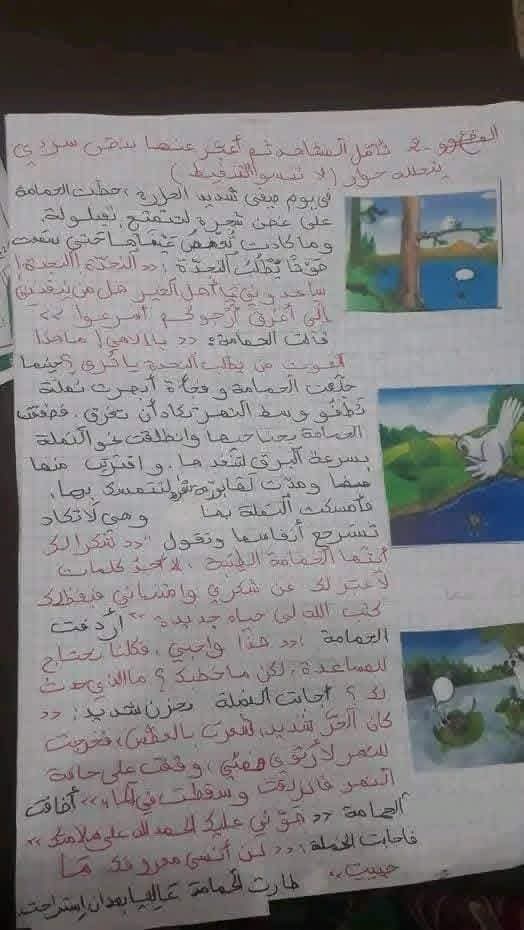 2- تأمل المشاهد ثم أعبر عنها بنص سردي
يتخلله حوار (لا تنسوا التنقيط)
في يوم صيفي شديد الحرارة، حطت الحمامة
على غصن شجرة لتتمتع بقيلولة
وما كادت تغمض عيناها حتى سمعت
صوتا يطلب النجدة: «النجدة، النجدة!
ساعدوني يا أهل الخير هل من ينقذني
إني أغرق أرجوكم أسرعوا»
قالت الحمامة: «يا إلاهي! ما هذا
الصوت من يطلب النجدة يا ترى؟ حينما
حلقت الحمامة وفجأة أبصرت نملة
تطفو وسط النهر تكاد أن تغرق. فصفقت
الحمامة بجناحيها وانطلقت نحو النملة
بسرعة البرق لتنقذها. واقتربت منها
ومدت لها لتتمسك بها.
فأمسكت النملة بها وهي لا تكاد
تسترجع أنفاسها وتقول: «شكرا لك
أيتها الحمامة لا أجد كلمات
لأعبر لك عن شكري وامتناني فبفضلك
كتب الله لي حياة جديدة» أردفت
الحمامة: «هذا واجبي، فكلنا نحتاج
للمساعدة، لكن ما خطبك؟ ما الذي حدث
لك؟ أجابت النملة بحزن شديد: «
كان الحر شديد، شعرت بالعطش، فخرجت
للنهر لأرتوي وقفت على حافة
النهر فانزلقت وسقطت في الماء» أضافت
الحمامة «هوني عليك الحمد لله على سلامتك»
فأجابت النملة: «لن أنسى معروفك ما
حييت» طارت الحمامة عاليا بعد أن استراحت.